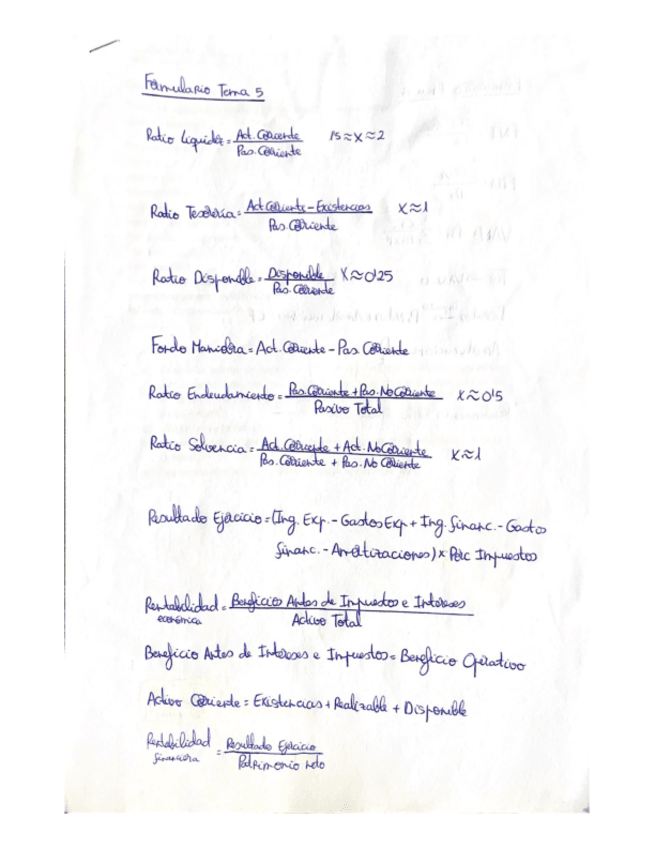 Formulario Tema 5
Ratio Liquidez = Act. Corriente / Pas. Corriente 1'5 ≈ x ≈ 2
Ratio Tesorería = Act Corriente - Existencias / Pas. Corriente x ≈ 1
Ratio Disponible = Disponible / Pas. Corriente x ≈ 0'25
Fondo Maniobra = Act. Corriente - Pas. Corriente
Ratio Endeudamiento = Pas. Corriente + Pas. No Corriente / Pasivo Total x ≈ 0'5
Ratio Solvencia = Act. Corriente + Act. No Corriente / Pas. Corriente + Pas. No Corriente x ≈ 1
Resultado Ejercicio = (Ing. Exp. - Gastos Exp + Ing. financ. - Gastos
financ. - Amortizaciones) x Porc Impuestos
Rentabilidad económica = Beneficios Antes de Impuestos e Intereses / Activo Total
Beneficio Antes de Intereses e Impuestos = Beneficio Operativo
Activo Corriente = Existencias + Realizable + Disponible
Rentabilidad financiera = Resultado Ejercicio / Patrimonio neto